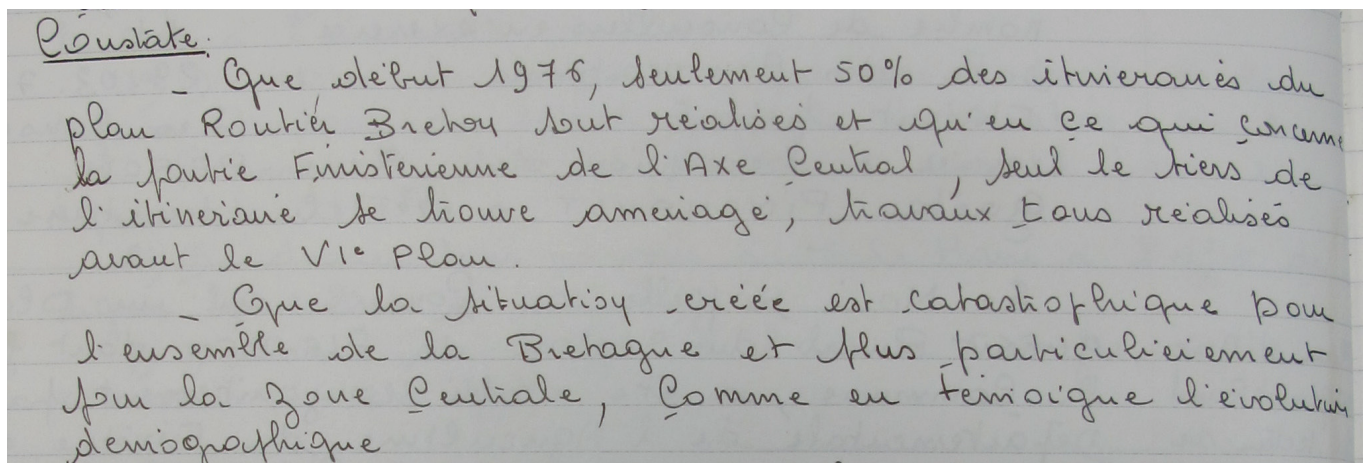 Constate.
- Que début 1976, seulement 50% des itineraires du
plan Routier Breton sont réalisés et qu'en ce qui concerne
la partie Finisterienne de l'Axe Central, seul le tiers de
l'itineraire se trouve amenagé, travaux tous réalisés
avant le VIe Plan.
- Que la situation créée est catastrophique pour
l'ensemble de la Bretagne et plus particulierement
pour la zone Centrale, Comme en témoigne l'évolution
demographique